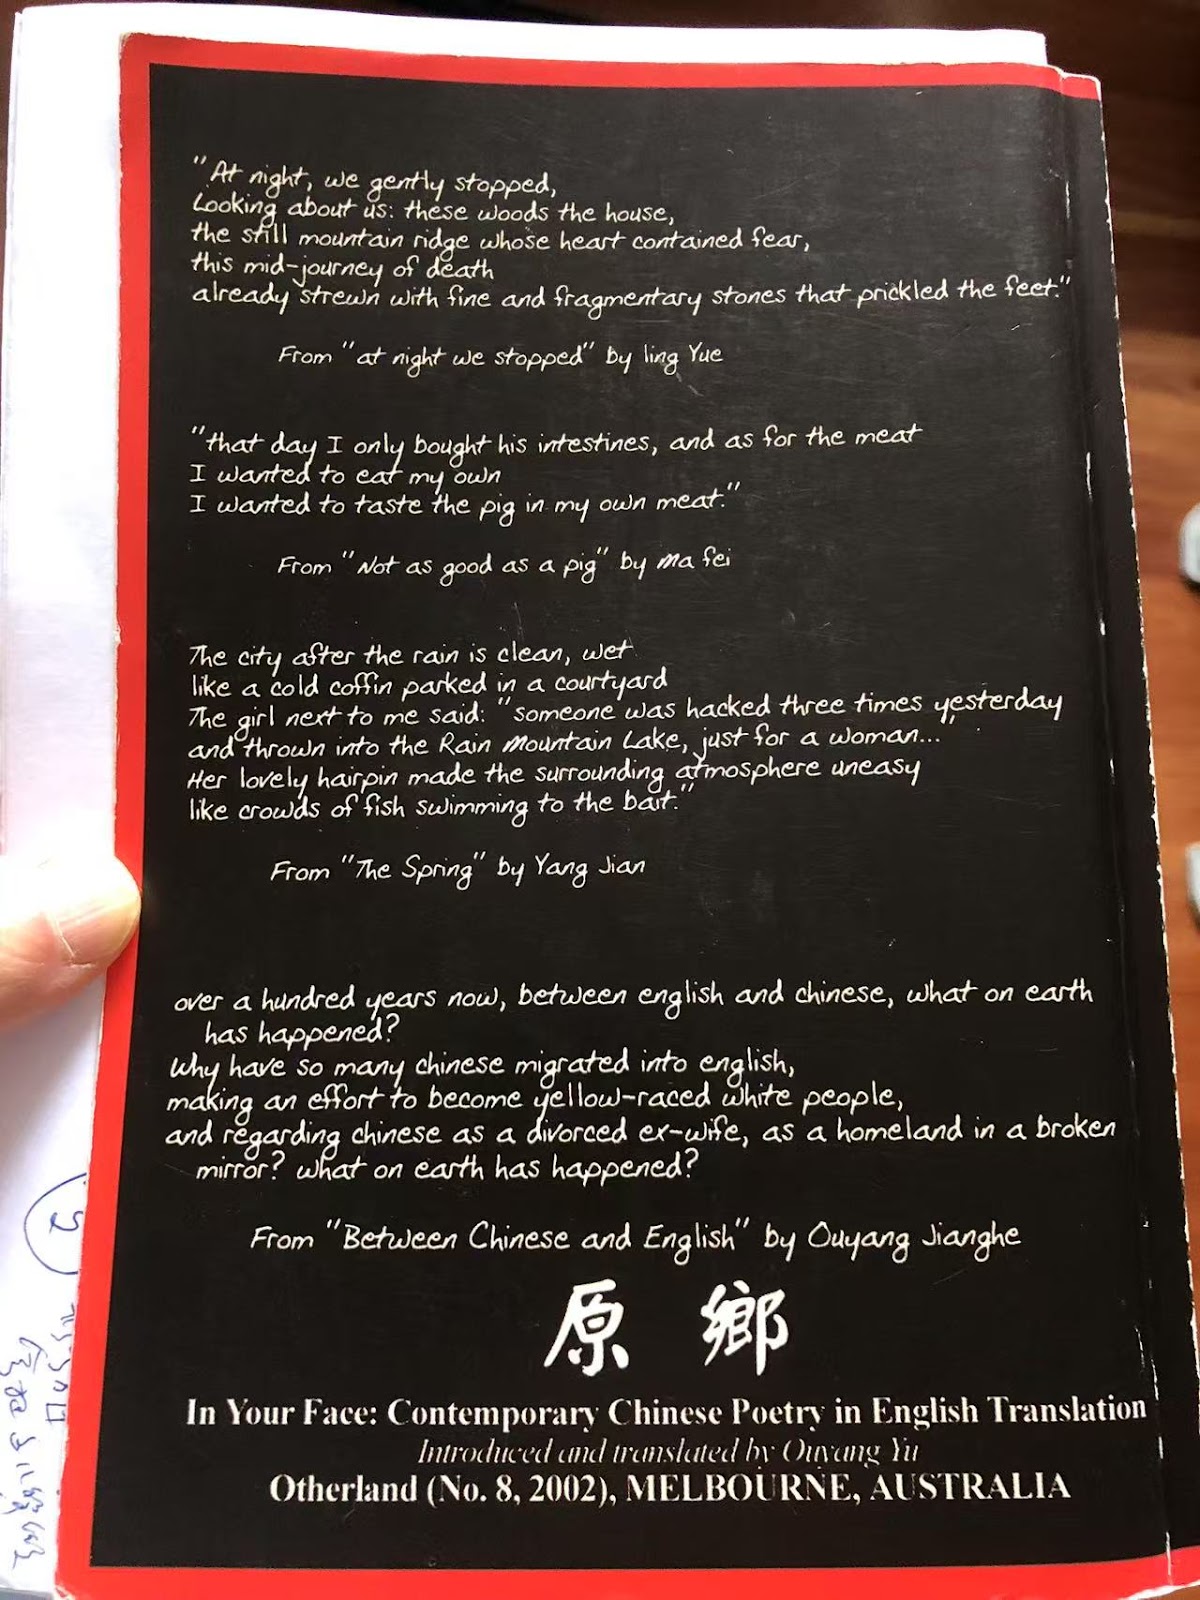 "At night, we gently stopped,
Looking about us: these woods the house,
the still mountain ridge whose heart contained fear,
this mid-journey of death
already strewn with fine and fragmentary stones that prickled the feet."
From "at night we stopped" by ling Yue
"that day I only bought his intestines, and as for the meat
I wanted to eat my own
I wanted to taste the pig in my own meat."
From "Not as good as a pig" by Ma fei
The city after the rain is clean, wet
like a cold coffin parked in a courtyard
The girl next to me said: "someone was hacked three times yesterday
and thrown into the Rain Mountain Lake, just for a woman..."
Her lovely hairpin made the surrounding atmosphere uneasy
like crowds of fish swimming to the bait."
From "The Spring" by Yang Jian
over a hundred years now, between english and chinese, what on earth
has happened?
Why have so many chinese migrated into english,
making an effort to become yellow-raced white people,
and regarding chinese as a divorced ex-wife, as a homeland in a broken
mirror? what on earth has happened?
From "Between Chinese and English" by Ouyang Jianghe
原鄉
In Your Face: Contemporary Chinese Poetry in English Translation
Introduced and translated by Ouyang Yu
Otherland (No. 8, 2002), MELBOURNE, AUSTRALIA